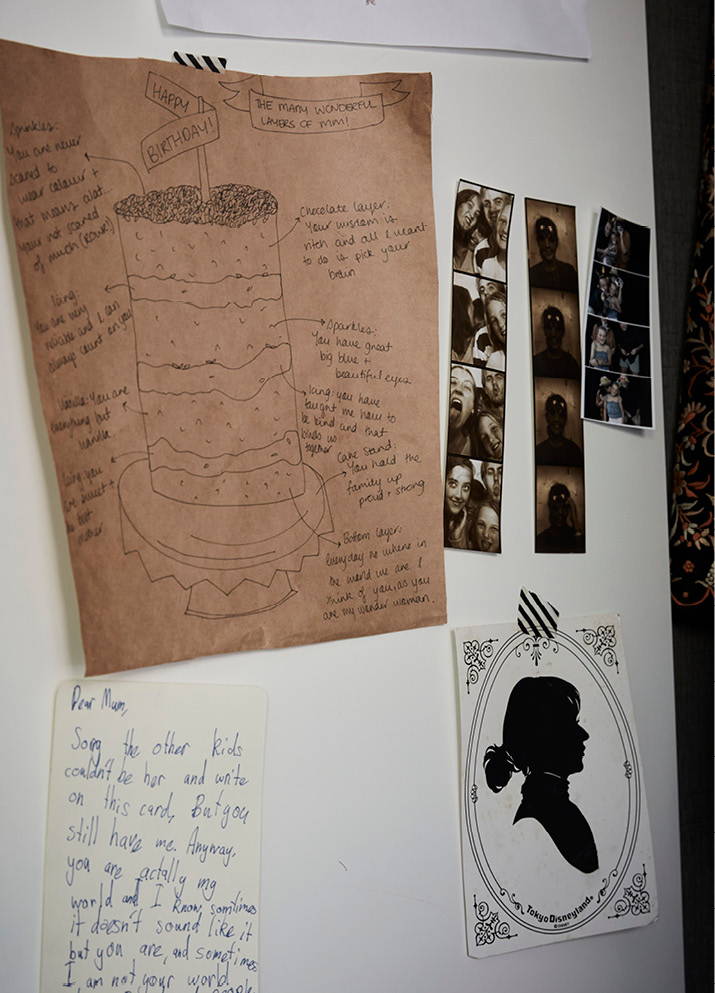 HAPPY
BIRTHDAY!
THE MANY WONDERFUL
LAYERS OF MM!
Sprinkles:
You are never
scared to
wear colour +
that means alot.
your not scared
of much
Icing:
You are very
and I can
always count on you
Vanilla: You are
everything but
vanilla
Icing: you
are sweet +
the best
mother
Chocolate layer:
Your wisdom is
rich and all I want
to do is pick your
brain
Sparkles:
You have great
big blue +
beautiful eyes
Icing: you have
taught me how to
be kind and that
binds us
together
Cake Stand:
You hold the
family up
proud + strong
Bottom layer:
Everyday no where in
the world we are I
think of you, as you
are my wonder woman.
Dear Mum,
Sorry the other kids
couldn't be her and write
on this card, But you
still have me. Anyway,
you are actally my
world and I know somtimes
it doesn't sound like it
but you are, and sometimes
I am not your world.
people
Tokyo Disneyland